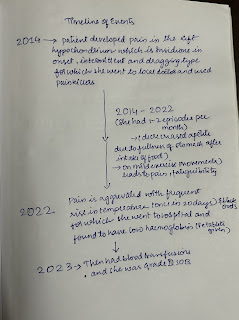 Timeline of Events
2014 → patient developed pain in the left
hypochondrium which is insidious in
onset, intermittent and dragging type
for which she went to local doctor and used
painkillers
2014 - 2022
(she had 1-2 episodes per
month)
↑ decreased apetite
due to fullness of stomach after
intake of food)
→ on mild exercise (movements)
leads to pain + fatiguibility
2022 Pain is aggravated with frequent
rise in temperature (once in 20 days)
for which she went to hospital and
found to have low haemoglobin (
given)
2023 → Then had blood transfusion
and she was